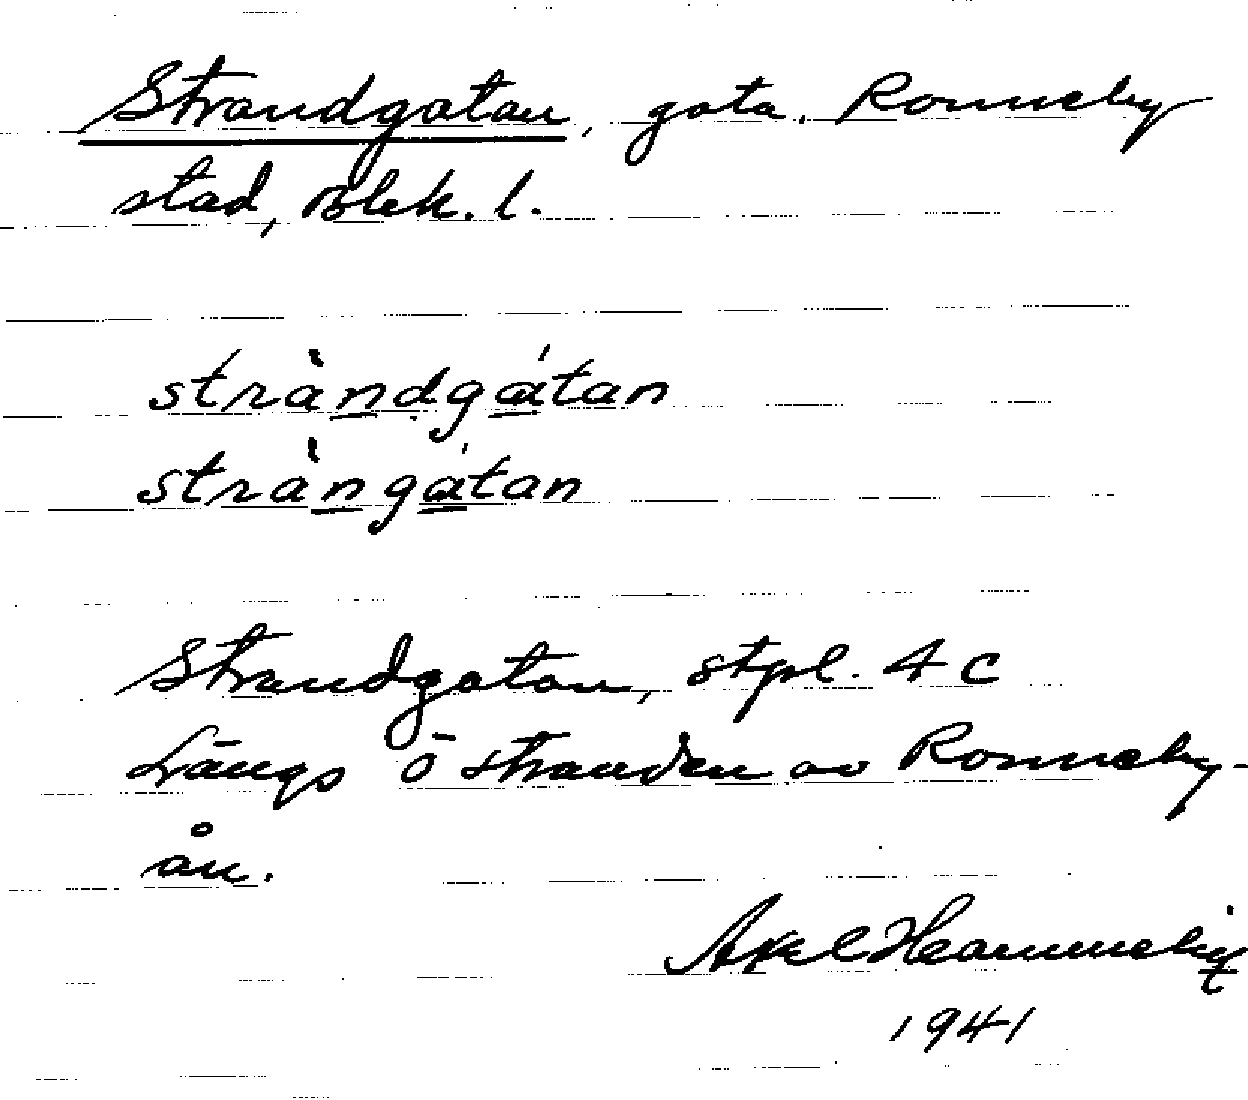 Strandgatan, gata, Ronneby
stad, Blek. l.
stràndgátan
stràngátan
Strandgatan, stpl. 4 c
Längs Ö stranden av Ronneby-
ån.
Axel
1941